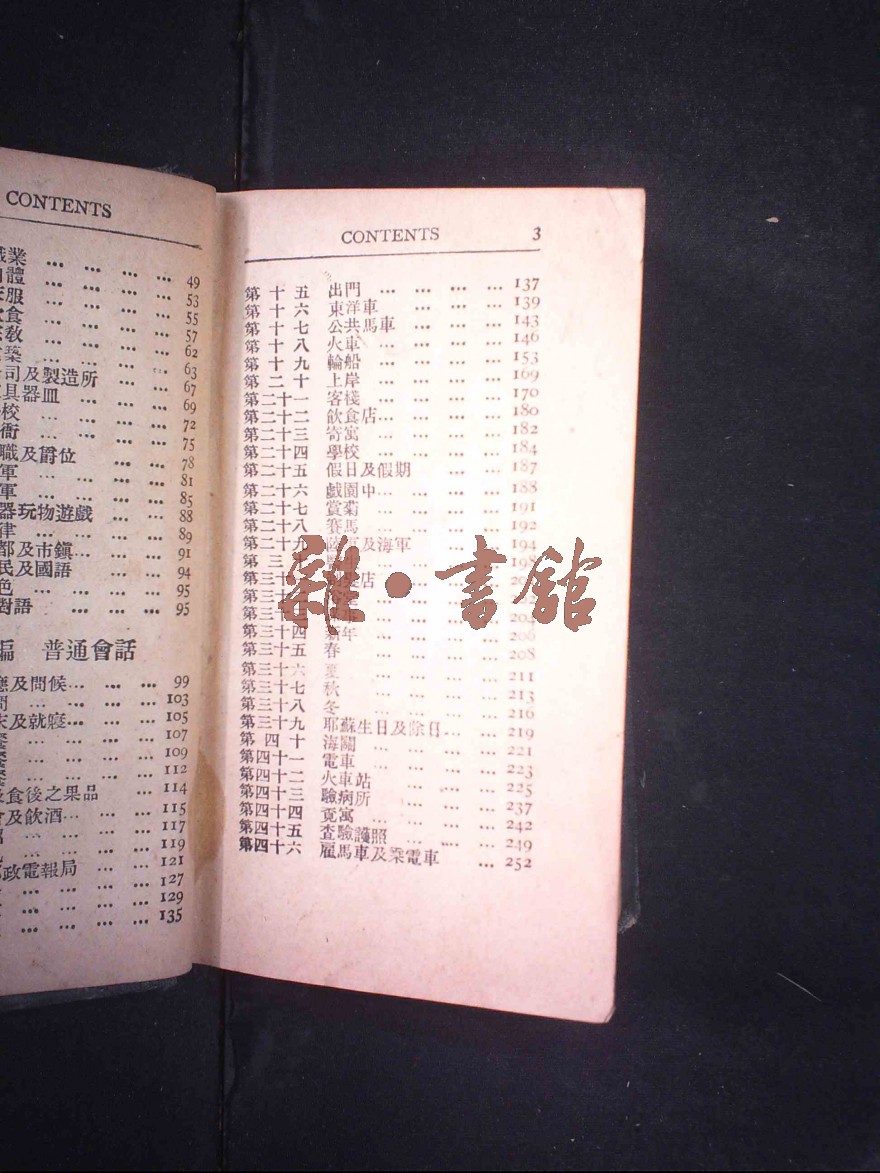 CONTENTS
業 ... ... ... ... 49
體 ... ... ... ... 53
服 ... ... ... ... 55
食 ... ... ... ... 57
教 ... ... ... ... 62
築 ... ... ... ... 63
司及製造所 ... ... 67
具器皿 ... ... ... 69
校 ... ... ... ... 72
衙 ... ... ... ... 75
職及爵位 ... ... 78
軍 ... ... ... ... 81
軍 ... ... ... ... 85
器玩物遊戲 ... ... 88
律 ... ... ... ... 89
都及市鎮... ... ... 91
民及國語 ... ... 94
色 ... ... ... ... 95
對語 ... ... ... 95
編 普通會話
應及問候... ... ... 99
... ... ... ... 103
及就寢... ... ... 105
... ... ... ... 107
... ... ... ... 109
... ... ... ... 112
及食後之果品 ... 114
及飲酒... ... ... 115
... ... ... ... 117
... ... ... ... 119
政電報局 ... ... 121
... ... ... ... 127
... ... ... ... 129
... ... ... ... 135
CONTENTS 3
第十五 出門 ... ... ... ... 137
第十六 東洋車 ... ... ... 139
第十七 公共馬車 ... ... ... 143
第十八 火車 ... ... ... ... 146
第十九 輪船 ... ... ... ... 153
第二十 上岸 ... ... ... ... 169
第二十一 客棧 ... ... ... ... 170
第二十二 飲食店... ... ... ... 180
第二十三 寄寓 ... ... ... ... 182
第二十四 學校 ... ... ... ... 184
第二十五 假日及假期 ... ... 187
第二十六 戲園中... ... ... ... 188
第二十七 賞菊 ... ... ... ... 191
第二十八 賽馬 ... ... ... ... 192
第二十九 及海軍 ... ... 194
第三十 ... ... ... 198
第三十 店 ... ...
第三十
第三十 204
第三十四 新年 ... ... ... ... 206
第三十五 春 ... ... ... ... 208
第三十六 夏 ... ... ... ... 211
第三十七 秋 ... ... ... ... 213
第三十八 冬 ... ... ... ... 216
第三十九 耶蘇生日及除日... ... 219
第四十 海關 ... ... ... ... 221
第四十一 電車 ... ... ... ... 223
第四十二 火車站 ... ... ... 225
第四十三 驗病所 ... ... ... 237
第四十四 覓寓 ... ... ... ... 242
第四十五 查驗護照 ... ... ... 249
第四十六 雇馬車及乘電車 ... 252
雜·書館